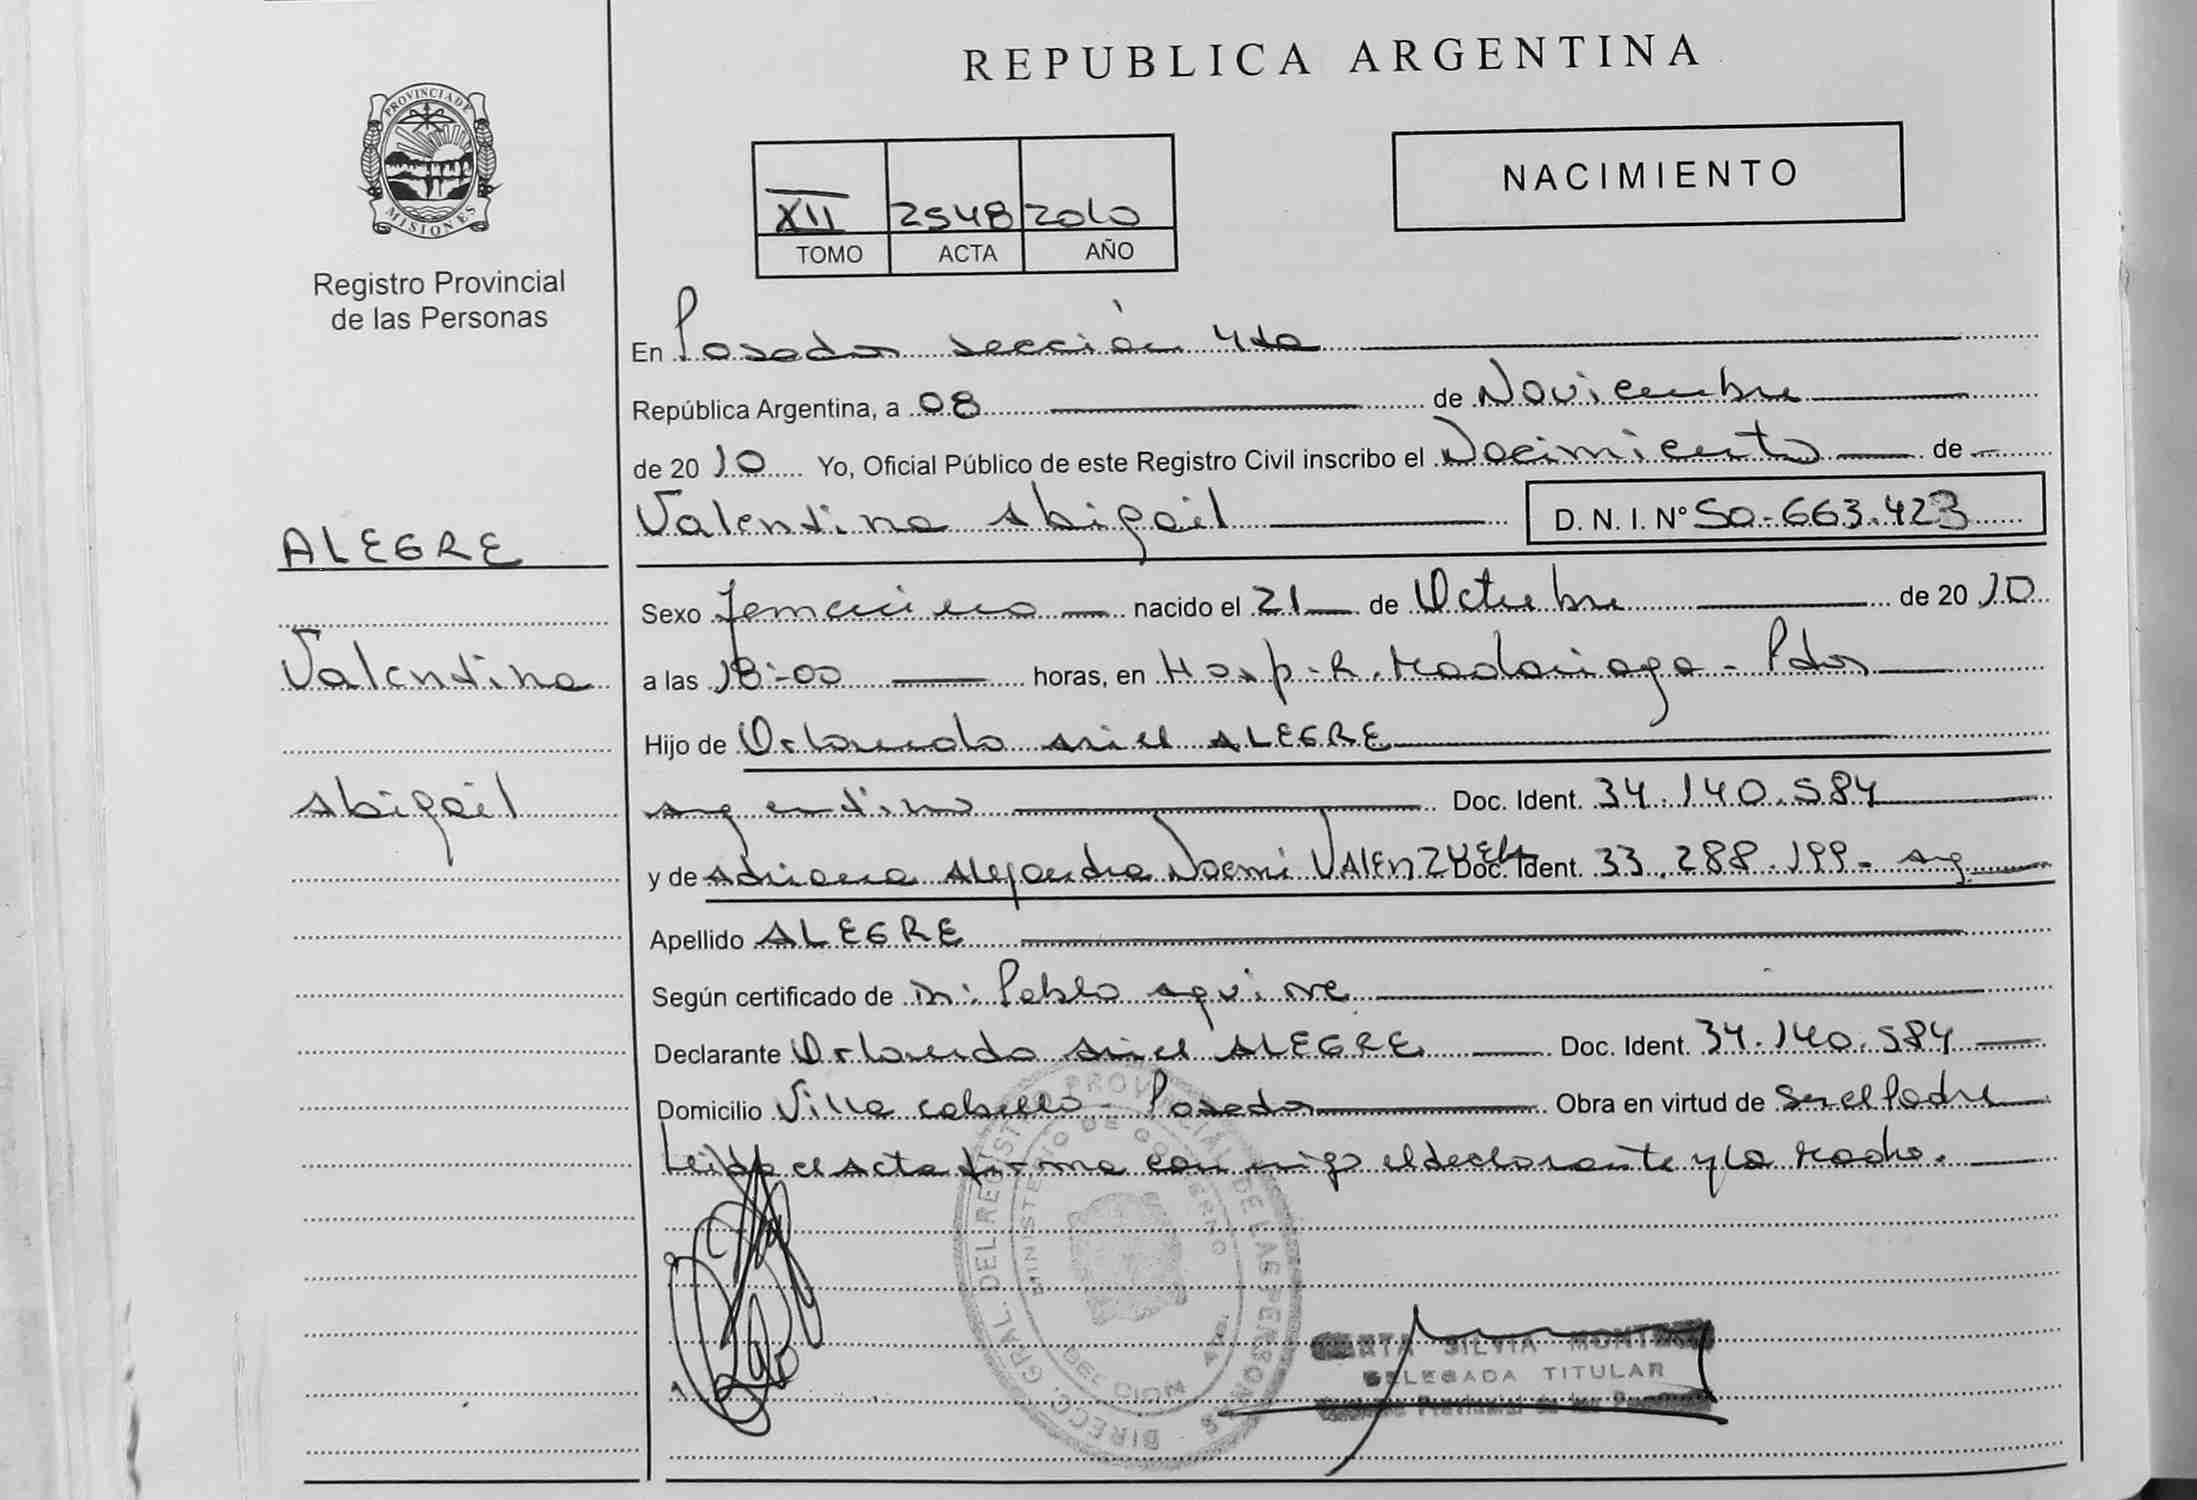 REPUBLICA ARGENTINA
PROVINCIA DE
MISIONES
Registro Provincial
de las Personas
NACIMIENTO
XII 2548 2010
TOMO ACTA AÑO
En Posadas sección 4ta
República Argentina, a 08 de Noviembre
de 2010 Yo, Oficial Público de este Registro Civil inscribo el Nacimiento de
Valentina Abigail D. N. I. N° 50.663.423
ALEGRE
Valentina
Abigail
Sexo femenino nacido el 21 de Octubre de 2010
a las 18:00 horas, en Hosp. R. Madariaga - Pdas
Hijo de Orlando Ariel ALEGRE
argentino Doc. Ident. 34.140.584
y de Adriana Alejandra Noemi VALENZUELA Doc. Ident. 33.288.199- arg
Apellido ALEGRE
Según certificado de Dr: Pablo Aguirre
Declarante Orlando Ariel ALEGRE Doc. Ident. 34.140.584
Domicilio Villa Cabello - Posadas Obra en virtud de Ser el Padre
Leida el Acta firma con migo el declarante y la Madre.
DIRECC. GRAL. DEL REGISTRO PROVINCIAL DE LAS PERSONAS
MINISTERIO DE GOBIERNO
SILVIA
DELEGADA TITULAR
Provincial de las